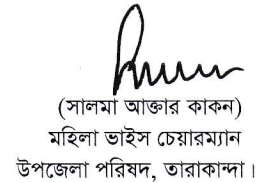 (সালমা আক্তার কাকন)
মহিলা ভাইস চেয়ারম্যান
উপজেলা পরিষদ, তারাকান্দা।